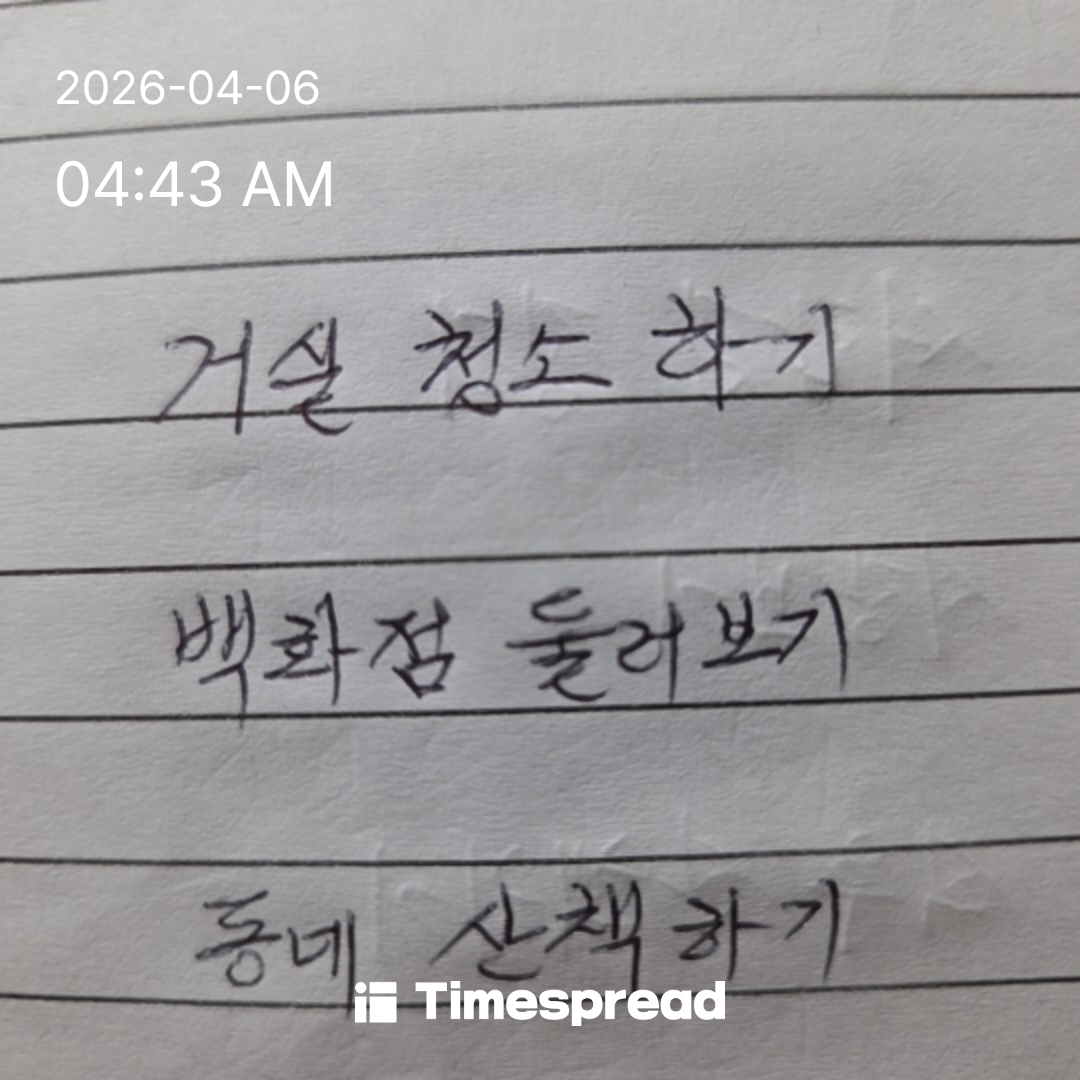 2026-04-06
04:43 AM
거실 청소 하기
백화점 둘러보기
동네 산책하기
Timespread